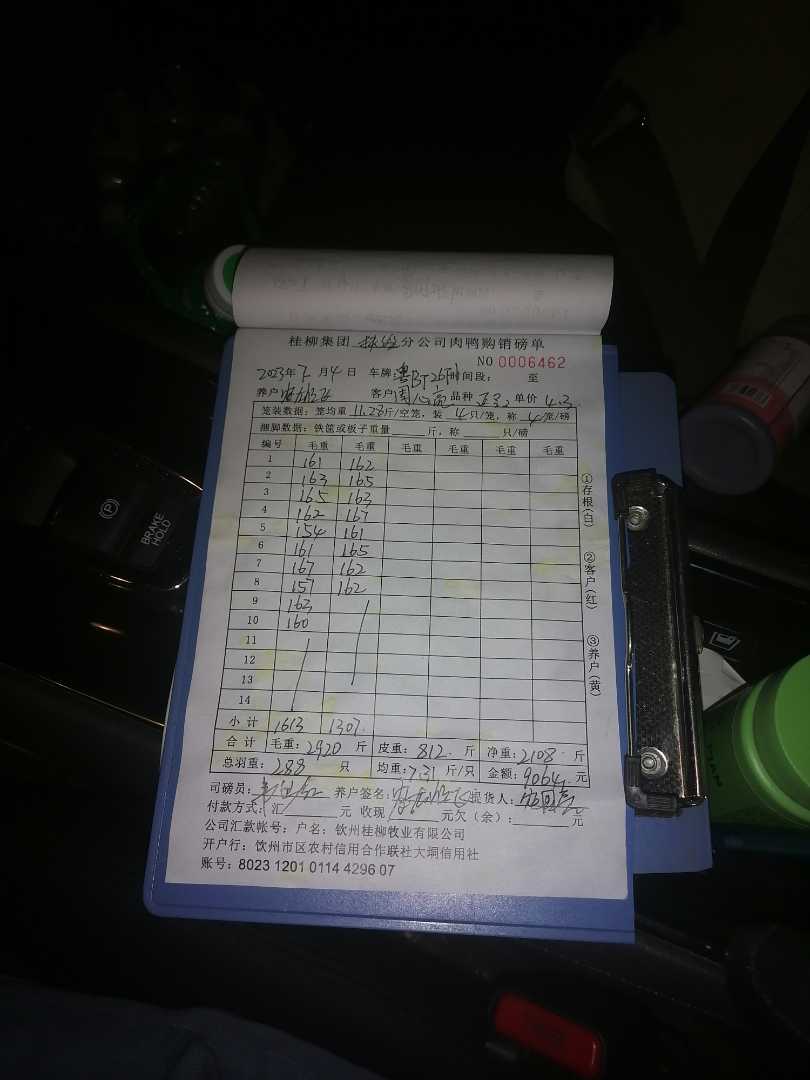 桂柳集团 分公司肉鸭购销磅单
NO 0006462
2023年7月4日 车牌:粤BT26 时间段: 至
养户 客户 周心亮 品种 单价 4.3
笼装数据: 笼均重 11.28 斤/空笼, 装 4 只/笼, 称 4 笼/磅
捆脚数据: 铁笼或板子重量 斤, 称 只/磅
编号 毛重 毛重 毛重 毛重 毛重 毛重
1 161 162
2 163 165
3 165 163
4 162 167
5 154 161
6 161 165
7 167 162
8 157 162
9 163
10 160
11
12
13
14
小计 1613 1307
合计 毛重: 2920 斤 皮重: 812 斤 净重: 2108 斤
总羽重: 288 只 均重: 7.31 斤/只 金额: 9064 元
司磅员: 养户签名: 提货人:
付款方式: 汇 元 收现 元欠(余): 元
公司汇款帐号: 户名: 钦州桂柳牧业有限公司
开户行: 钦州市区农村信用合作联社大垌信用社
账号: 8023 1201 0114 4296 07
①存根(白) ②客户(红) ③养户(黄)
BRAKE
HOLD